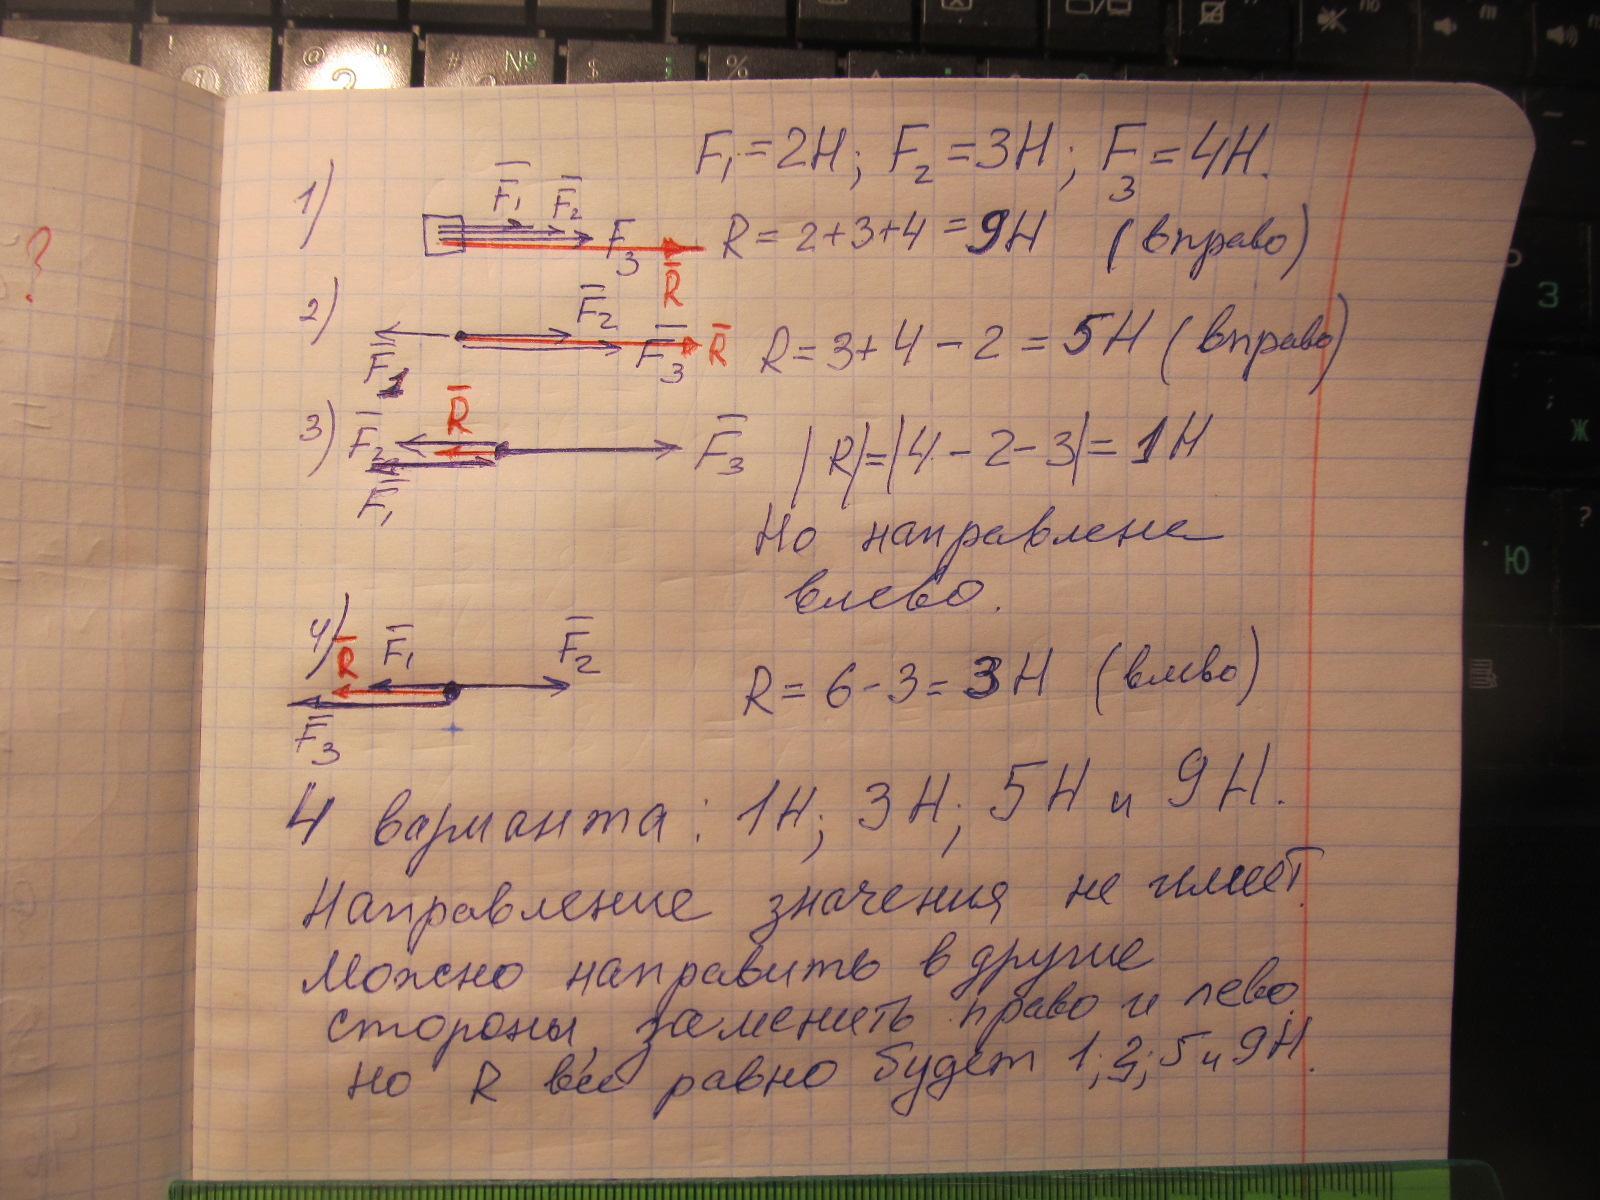 F₁ = 2Н; F₂ = 3Н; F₃ = 4Н.
1) F̅₁ F̅₂ F₃ R̅ R = 2+3+4 = 9Н (вправо)
2) F̅₁ F̅₂ F̅₃ R̅ R = 3+4-2 = 5Н (вправо)
3) F̅₂ F̅₁ R̅ F̅₃ |R| = |4-2-3| = 1Н
Но направлена
влево.
4) R̅ F̅₁ F̅₂ F̅₃ R = 6-3 = 3Н (влево)
4 варианта: 1Н; 3Н; 5Н и 9Н.
Направление значения не имеет.
Можно направить в другие
стороны, заменить право и лево
но R всё равно будет 1; 3; 5 и 9Н.
?